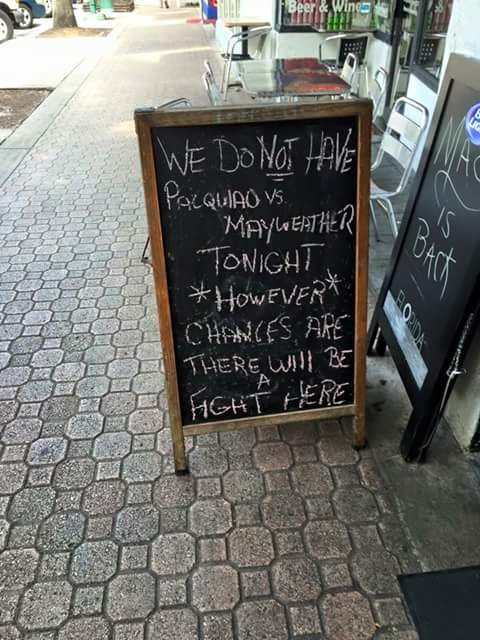 Beer & Wine
WE DO NOT HAVE
PACQUIAO VS.
MAYWEATHER
TONIGHT
*HOWEVER*
CHANCES ARE
THERE WIll BE
A
FIGHT HERE
MAC
IS
BACK
FLORIDA